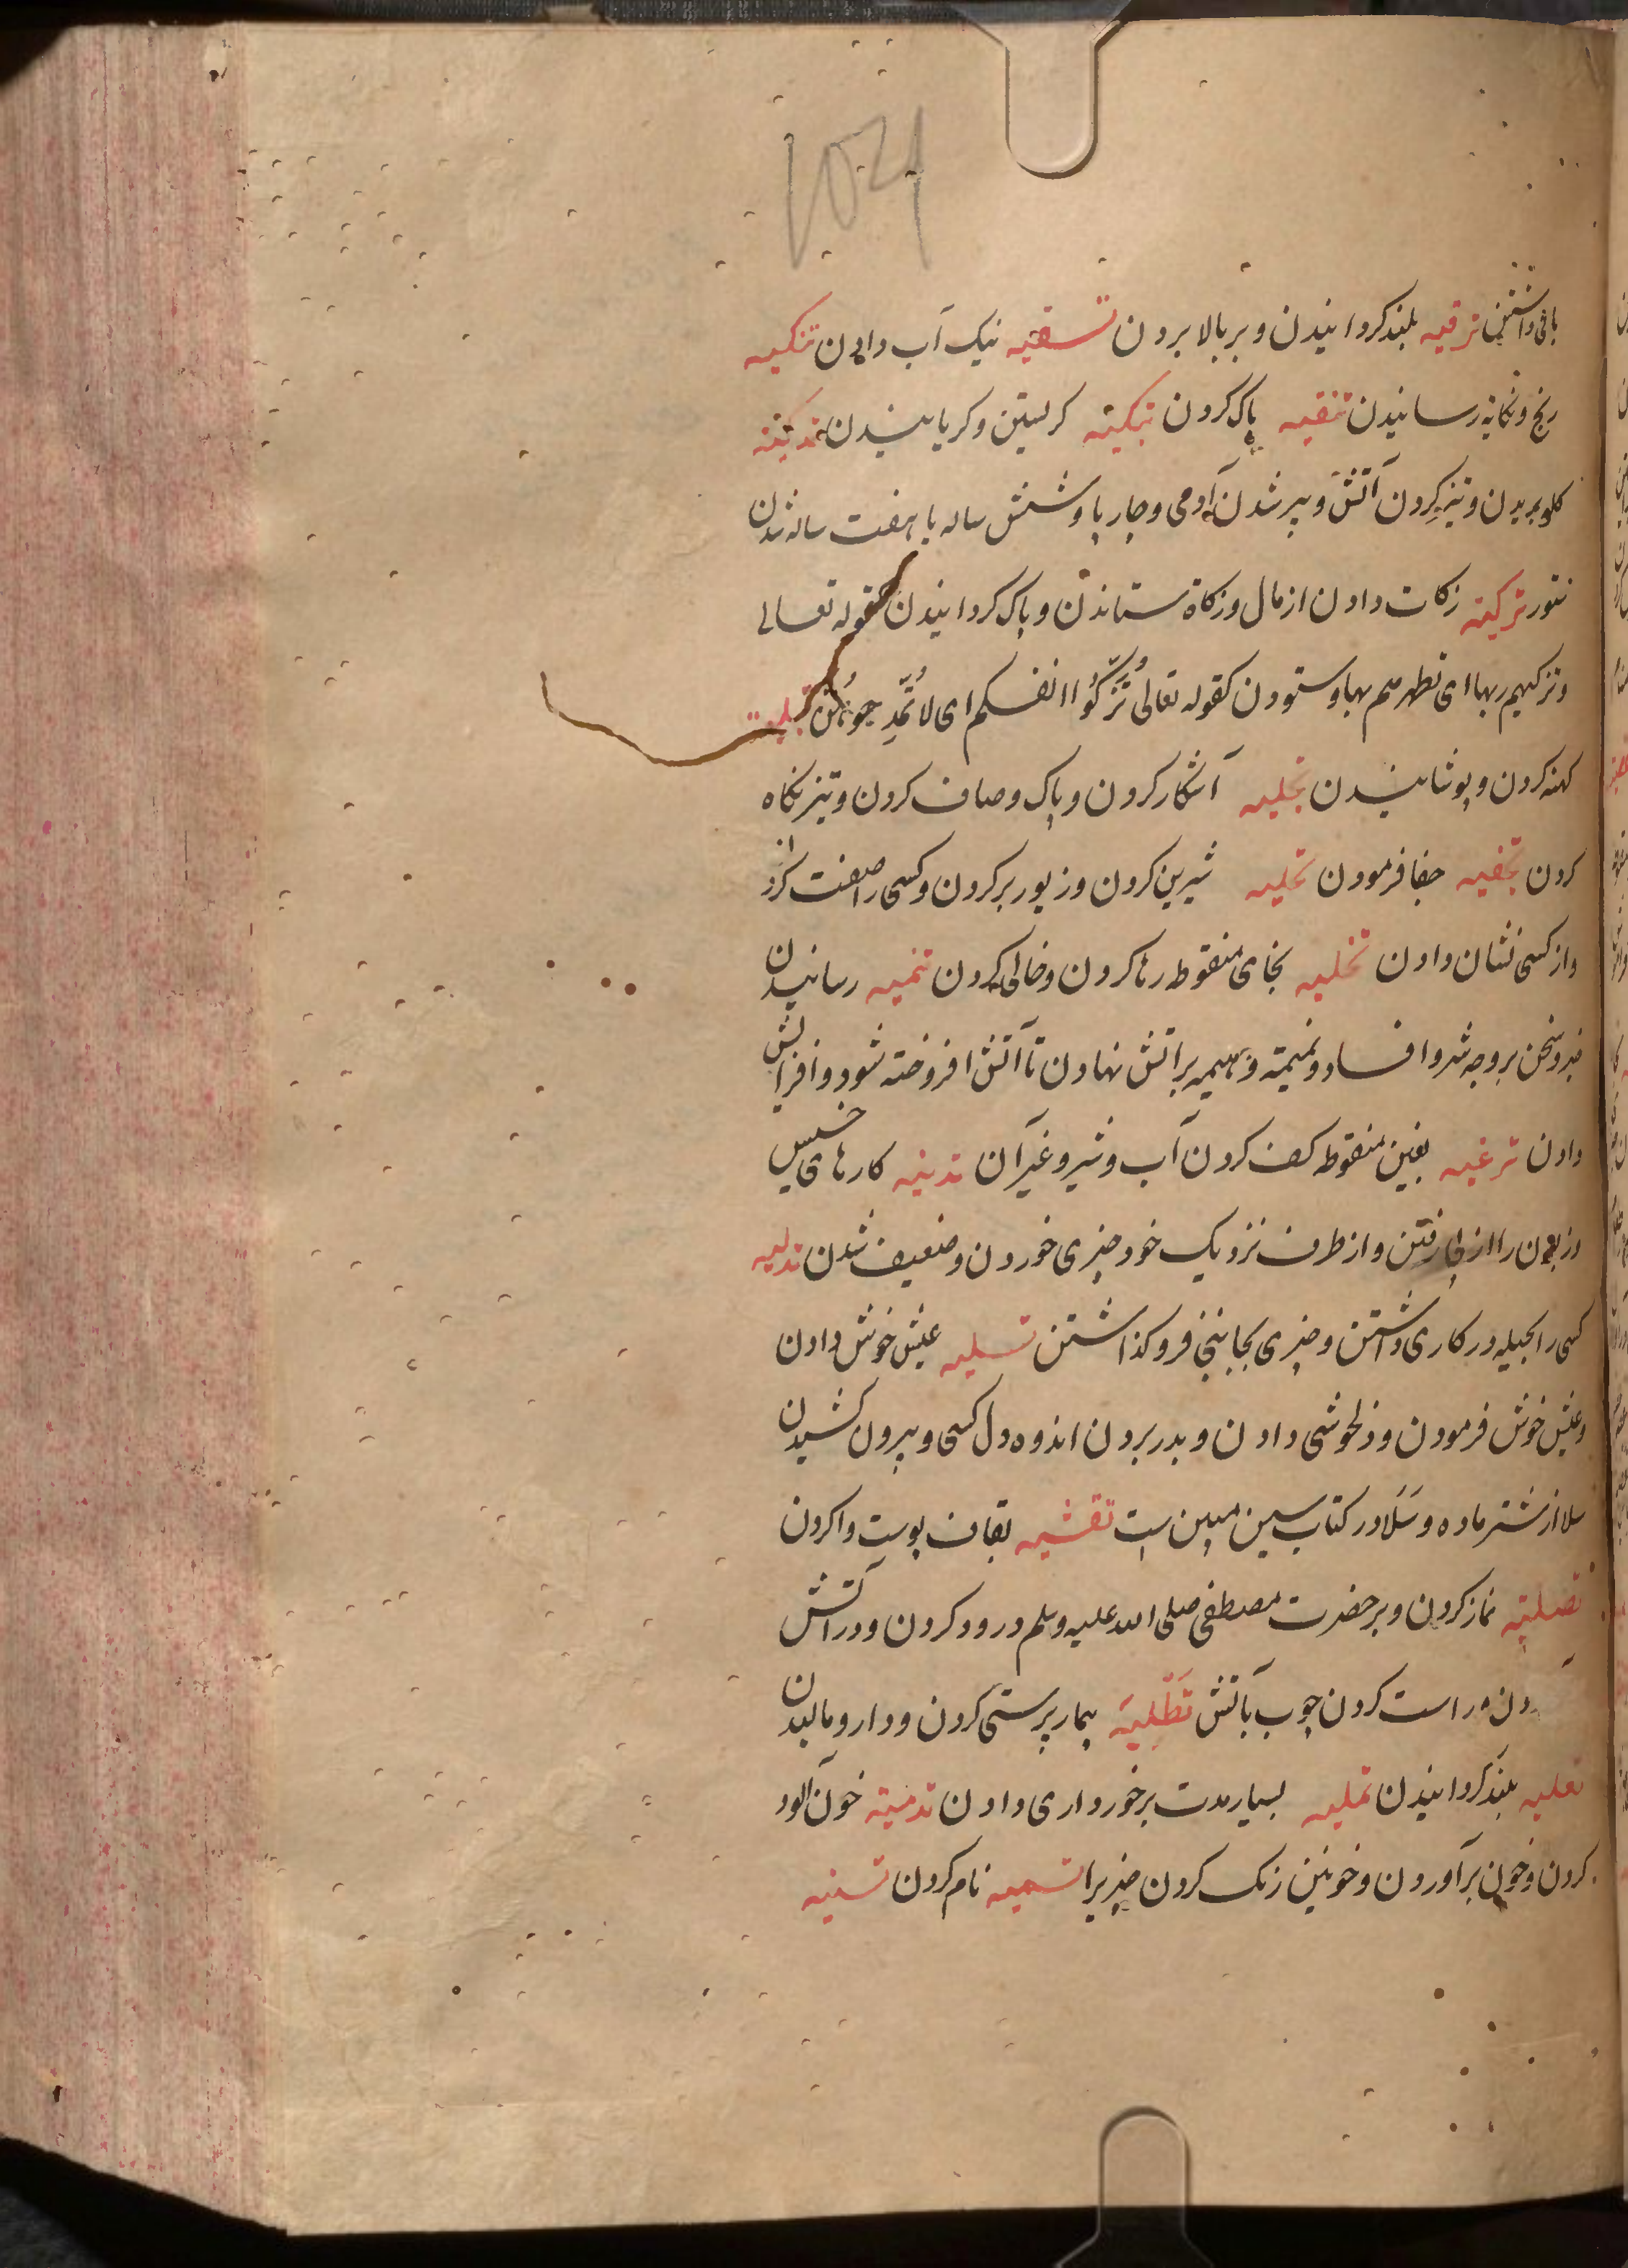 1024
باقی داشتن ترقیه بلند کردانیدن و بر بالا بردن تسقیه نیک آب دادن تنکیه
رنج و نکایه رسانیدن تنقیه پاک کردن تبکیته کریستن و کریانیدن تذکیته
کلو بریدن و تیز کردن آتش و پیر شدن آدمی و چارپا و شش ساله یا هفت ساله شدن
ستور تزکیته زکات دادن از مال و زکاة ستاندن و پاک کردانیدن کقوله تعالی
وتزکیهم بها ای تطهرهم بها و ستودن کقوله تعالی تُزَکُّوا انفسکم ای لا
کهنه کردن و پوشانیدن تجلیه آشکار کردن و پاک و صاف کردن و تیز نکاه
کردن تجفیه جفا فرمودن تحلیه شیرین کردن و زیور بر کردن و کسی را صفت کردن
و از کسی نشان دادن تخلیه بخای منقوطه رها کردن و خالی کردن تنمیه رسانیدن
خبر و سخن بر وجه شر و افساد و نمیمة و هیمه بر آتش نهادن تا آتش افروخته شود و افزایش
دادن ترغیه بغین منقوطه کف کردن آب و شیر و غیر آن تدنیه کارهای خسیس
را از پی رفتن و از طرف نزدیک خود چیزی خوردن و ضعیف شدن تدلیه
کسی را بحیله در کاری داشتن و چیزی بجایی فرو کذاشتن تسلیه عیش خوش دادن
و عیش خوش فرمودن و دلخوشی دادن و بدر بردن اندوه دل کسی و بیرون کشیدن
سلا از شتر ماده و سَلَا در کتاب سین مبین است تقشیه بقاف پوست وا کردن
تصلیته نماز کردن و بر حضرت مصطفی صلی الله علیه وسلم درود کردن و در آتش
راست کردن چوب بآتش تَطْلِیَه بیمار پرستی کردن و دارو مالیدن
تعلیه بلند کردانیدن تملیه بسیار مدت برخورداری دادن تدمیته خون آلود
کردن و خون برآوردن و خونین رنک کردن چیزیرا تسمیه نام کردن تسنیه